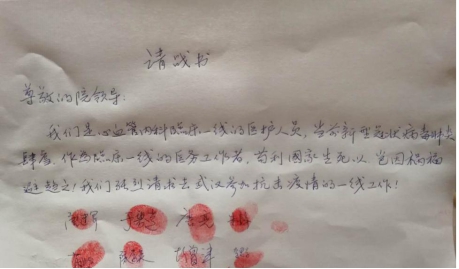 请战书
尊敬的院领导:
我们是心血管内科临床一线的医护人员,当前新型冠状病毒肺炎
肆虐,作为临床一线的医务工作者,苟利国家生死以,岂因祸福
避趋之!我们强烈请求去武汉参加抗击疫情的一线工作!